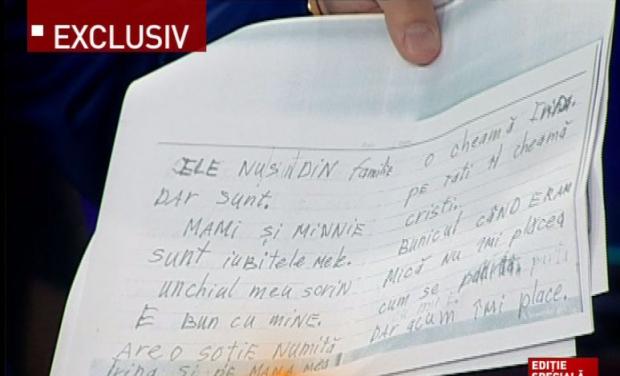 EXCLUSIV
ELE NUSINDIN familie
DAR SUNT.
MAMI și MINNIE
sunt iubitele mele.
unchiul meu sorin
E BUN CU MINE.
Are o soție NUMITĂ
Irina și pe MAMA mea
o cheamă
pe tati îl cheamă
cristi.
BUNICUL CÂND ERAM
MICĂ NU îMI plăcea
cum se
DAR ACUM îmi place.
EDIȚIE
SPECIALĂ